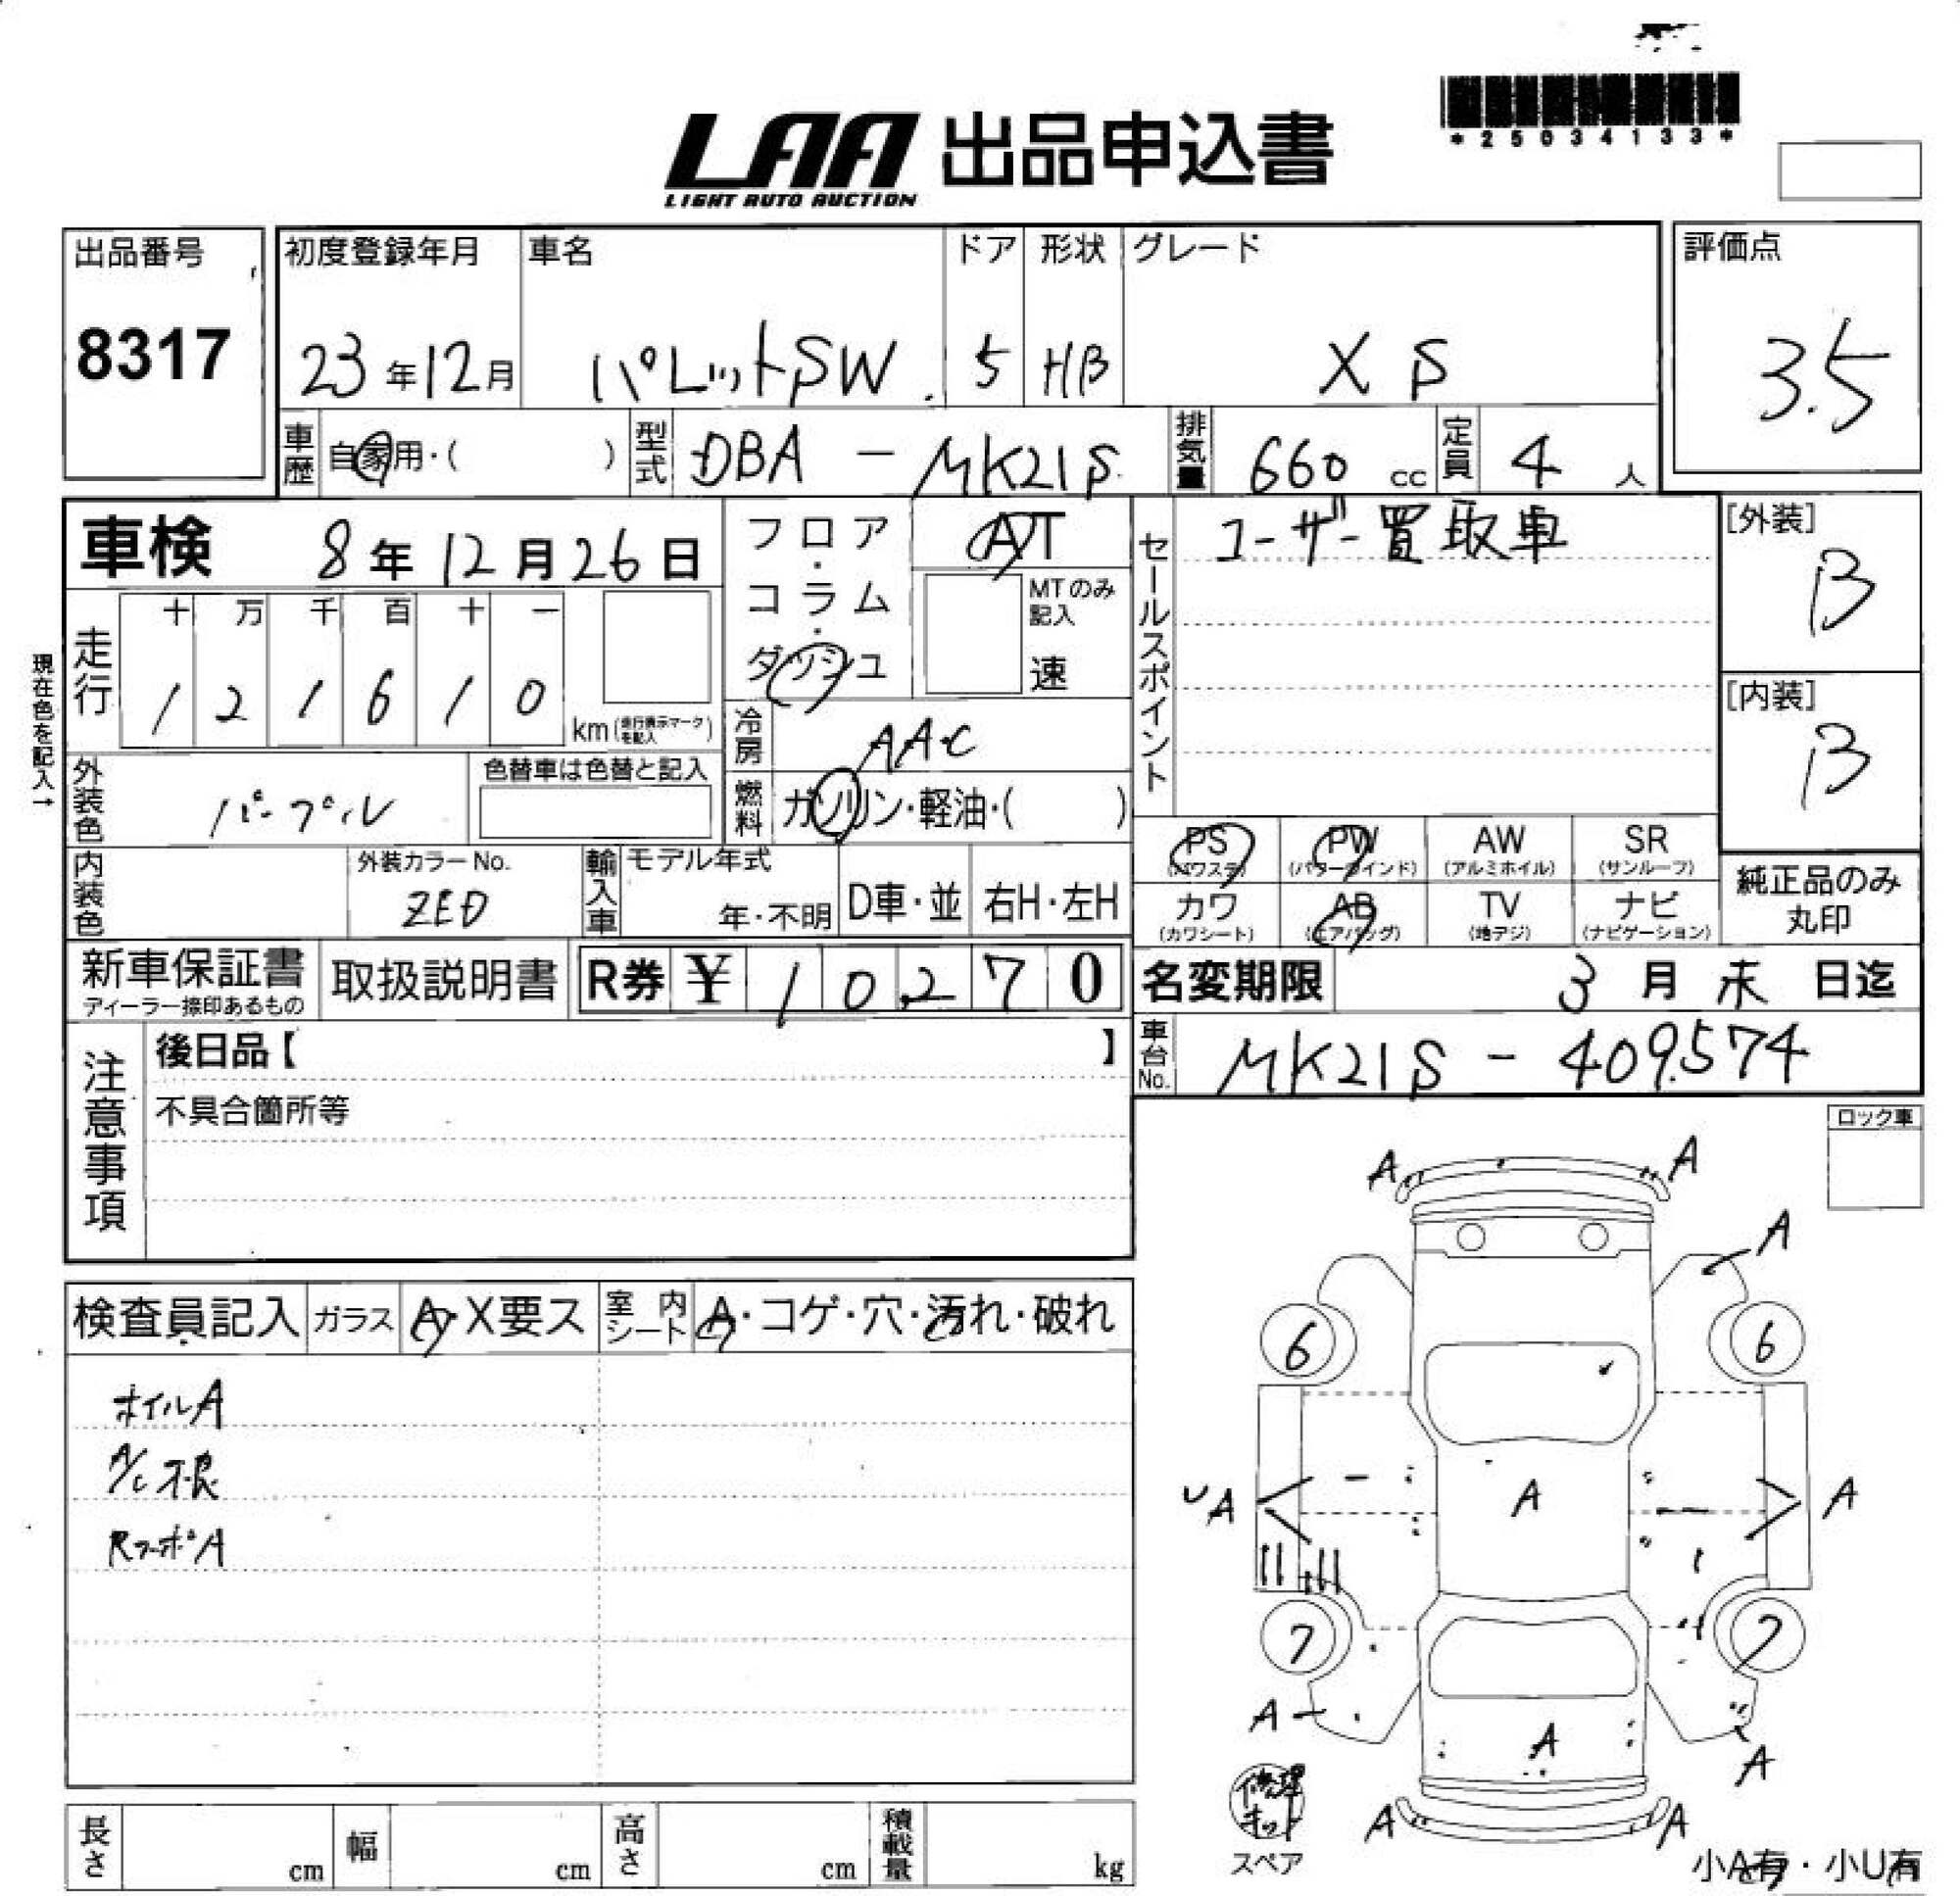 LAA 出品申込書
LIGHT AUTO AUCTION
*25034133*
出品番号
8317
初度登録年月
23年12月
車名
パレットSW
ドア
5
形状
HB
グレード
XS
評価点
3.5
車歴 自家用・( )
型式 DBA - MK21S
排気量 660 cc
定員 4 人
車検 8年12月26日
フロア・コラム・ダッシュ
AT
MTのみ記入
速
セールスポイント
ユーザー買取車
[外装]
B
[内装]
B
現在色を記入→
走行
十 万 千 百 十 一
1 2 1 6 1 0
km (走行表示マークを記入)
冷房 AAC
燃料 ガソリン・軽油・( )
外装色 パープル
色替車は色替と記入
内装色
外装カラーNo.
ZED
輸入車
モデル年式
年・不明
D車・並
右H・左H
PS (パワステ)
PW (パワーウインド)
AW (アルミホイル)
SR (サンルーフ)
カワ (カワシート)
AB (エアバッグ)
TV (地デジ)
ナビ (ナビゲーション)
純正品のみ
丸印
新車保証書
ディーラー捺印あるもの
取扱説明書
R券 ¥ 10,270
名変期限 3月末日迄
車台No. MK21S - 409574
注意事項
後日品【 】
不具合箇所等
ロック車
検査員記入
ガラス A・X要ス
室内シート A・コゲ・穴・汚れ・破れ
ホイルA
A/C不良
RフーホA
A A
A
6 6
A A A
7 7
A A A
A A
修理キット
スペア
小A有・小U有
長さ cm
幅 cm
高さ cm
積載量 kg